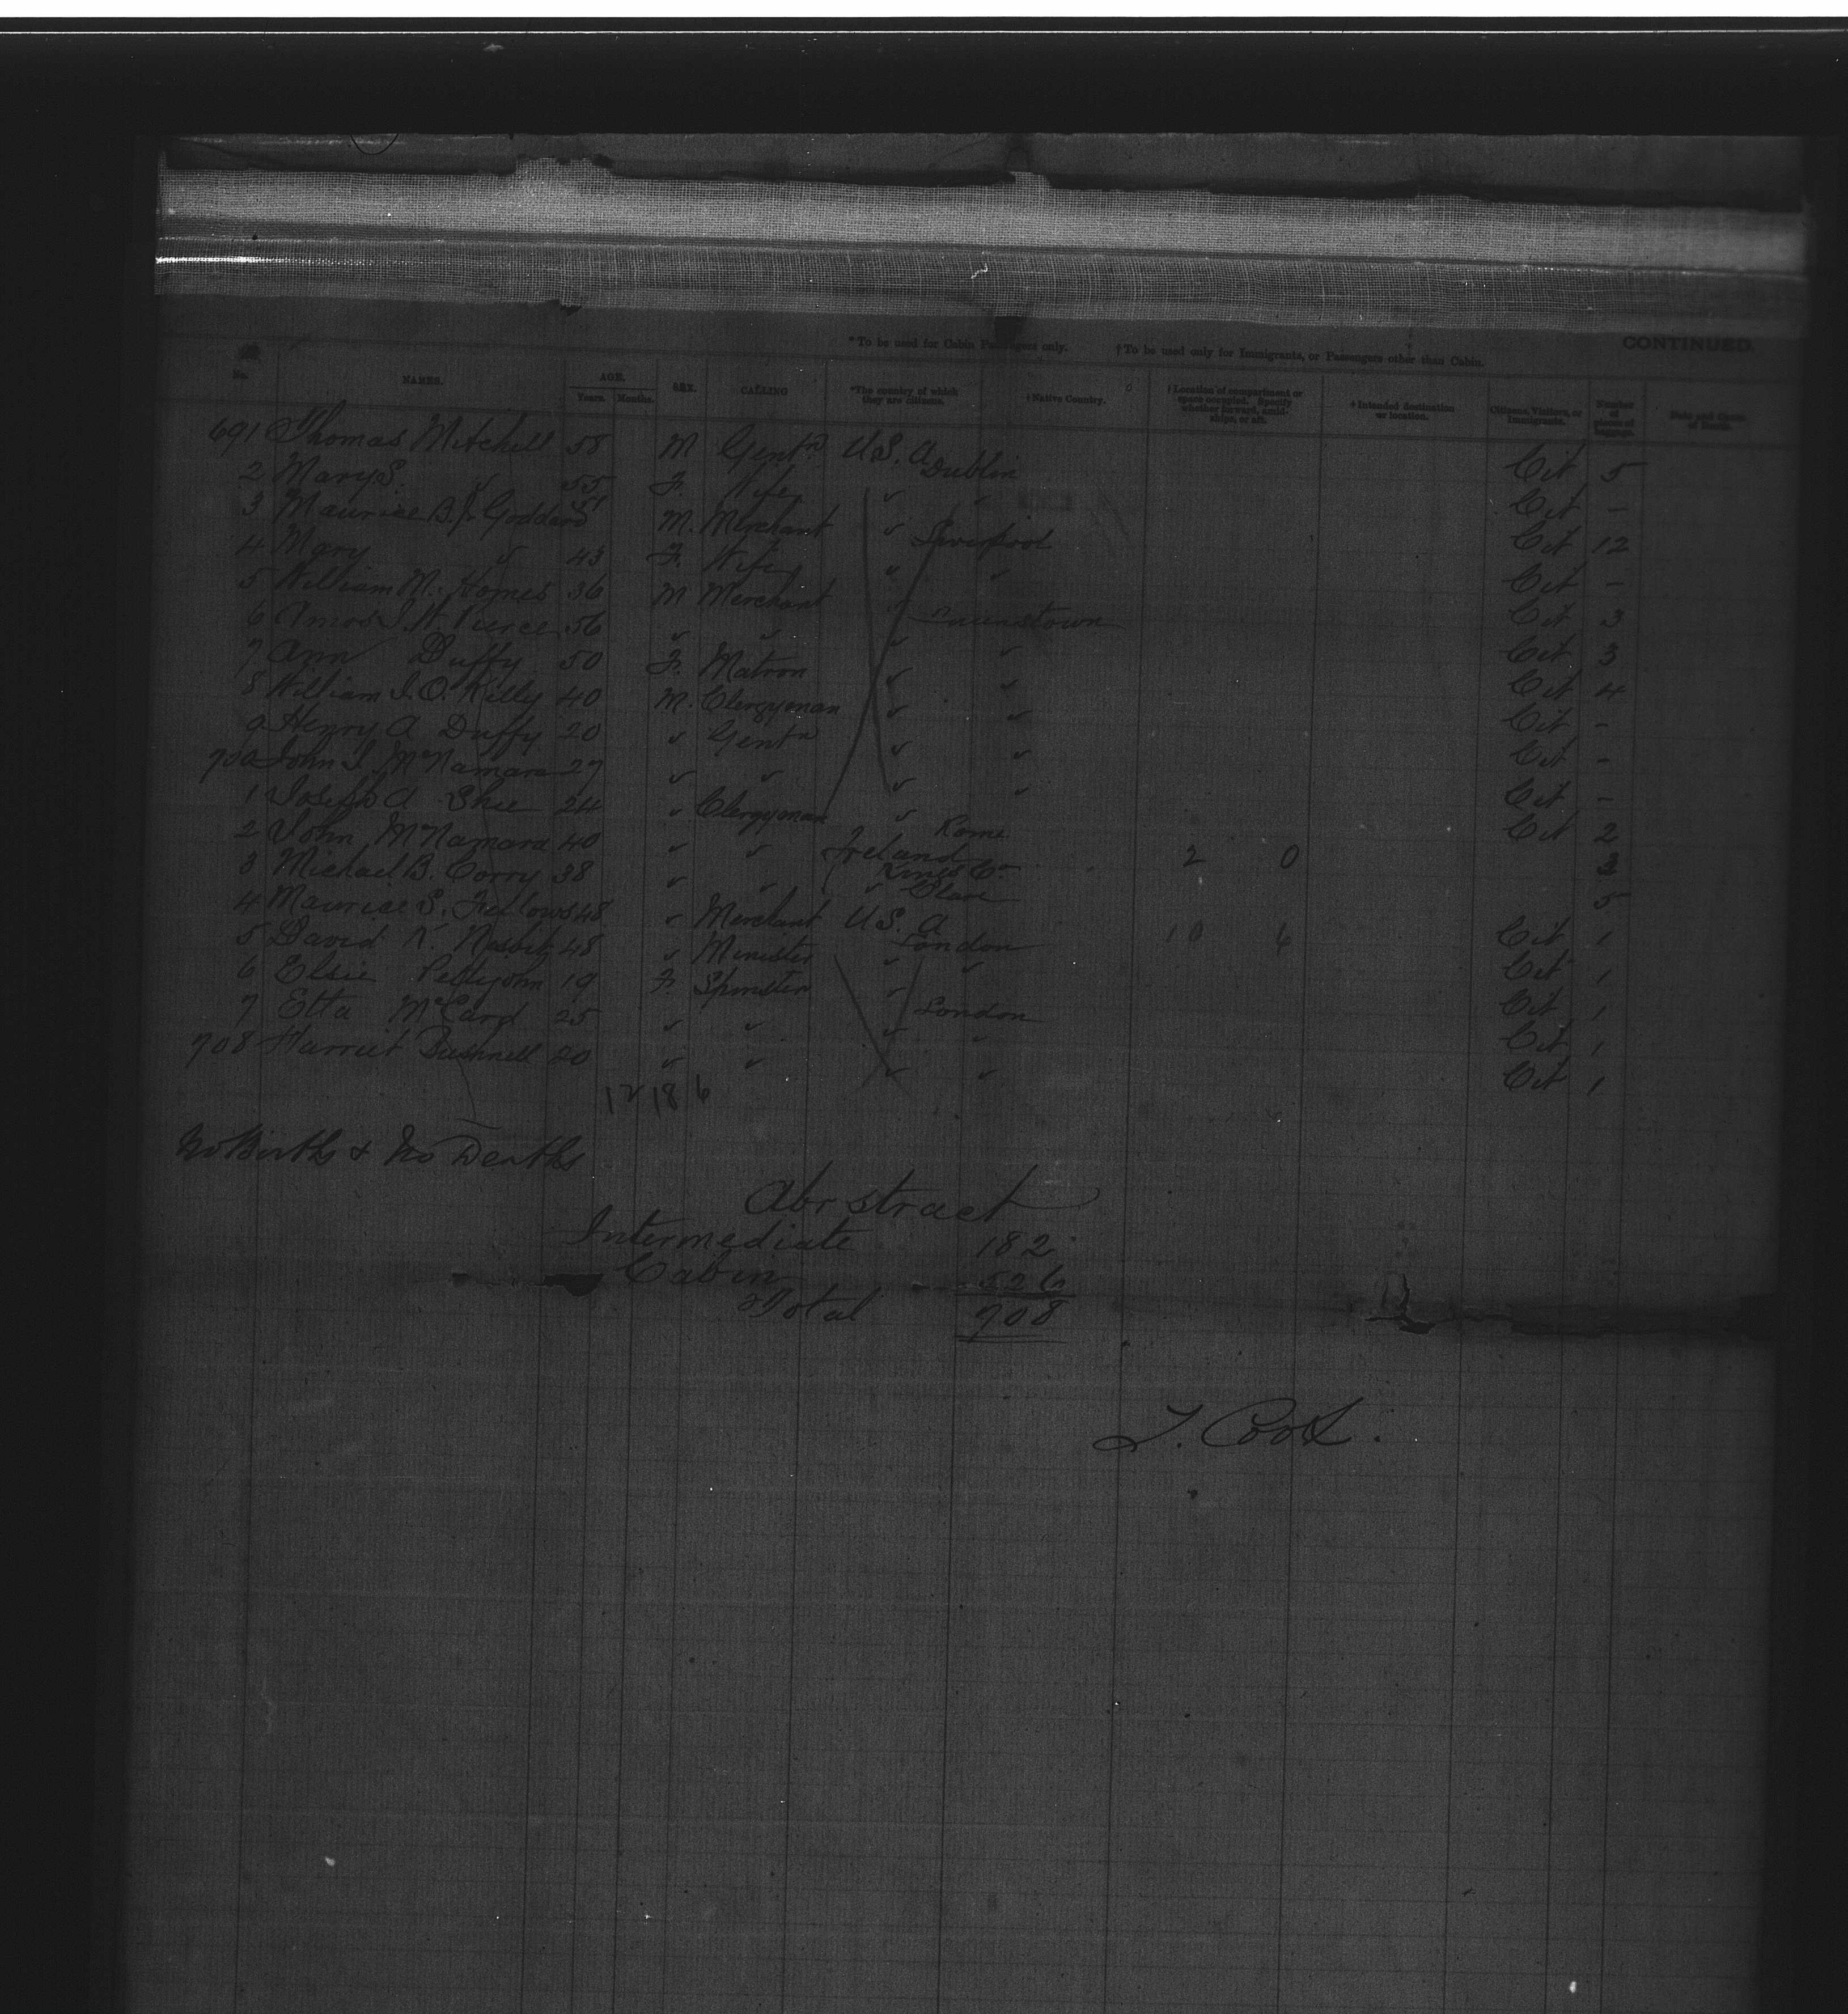 *To be used for Cabin Passengers only. †To be used only for Immigrants, or Passengers other than Cabin. CONTINUED.
No. NAMES. AGE. Years. Months. SEX. CALLING *The country of which they are citizens. †Native Country. †Location of compartment or space occupied. Specify whether forward, amidships, or aft. †Intended destination or location. Citizens, Visitors, or Immigrants. Number of pieces of baggage. Date and Cause of Death.
691 Thomas Mitchell 58 M Gentn U.S.A Dublin Cit 5
2 Mary S. " 55 F. Wife " " Cit -
3 Maurice B. J. Goddard 51 M. Merchant " Liverpool Cit 12
4 Mary " 43 F. Wife " " Cit -
5 William M. Homes 36 M Merchant " Queenstown Cit 3
6 Amos J. W. Pierce 56 " " " " Cit 3
7 Ann Duffy 50 F. Matron " " Cit 4
8 William J. O. Kelly 40 M. Clergyman " " Cit -
9 Henry A Duffy 20 " Gentn " " Cit -
700 John J. McNamara 27 " " " " Cit -
1 Joseph A Shee 24 " Clergyman " Rome Cit 2
2 John McNamara 40 " " Ireland Kings Co. 2 0 3
3 Michael B. Corry 38 " " " Clare 5
4 Maurice S. Fellows 48 " Merchant U.S. A London 10 6 Cit 1
5 David K. Nesbit 48 " Minister " " Cit 1
6 Elsie Pettyjohn 19 F. Spinster " London Cit 1
7 Etta McCard 25 " " " " Cit 1
708 Harriet Bushnell 20 " " " " Cit 1
12 18 6
No Births & No Deaths
Abrstract
Intermediate 182
Cabin 526
Total 708
T. Cook.